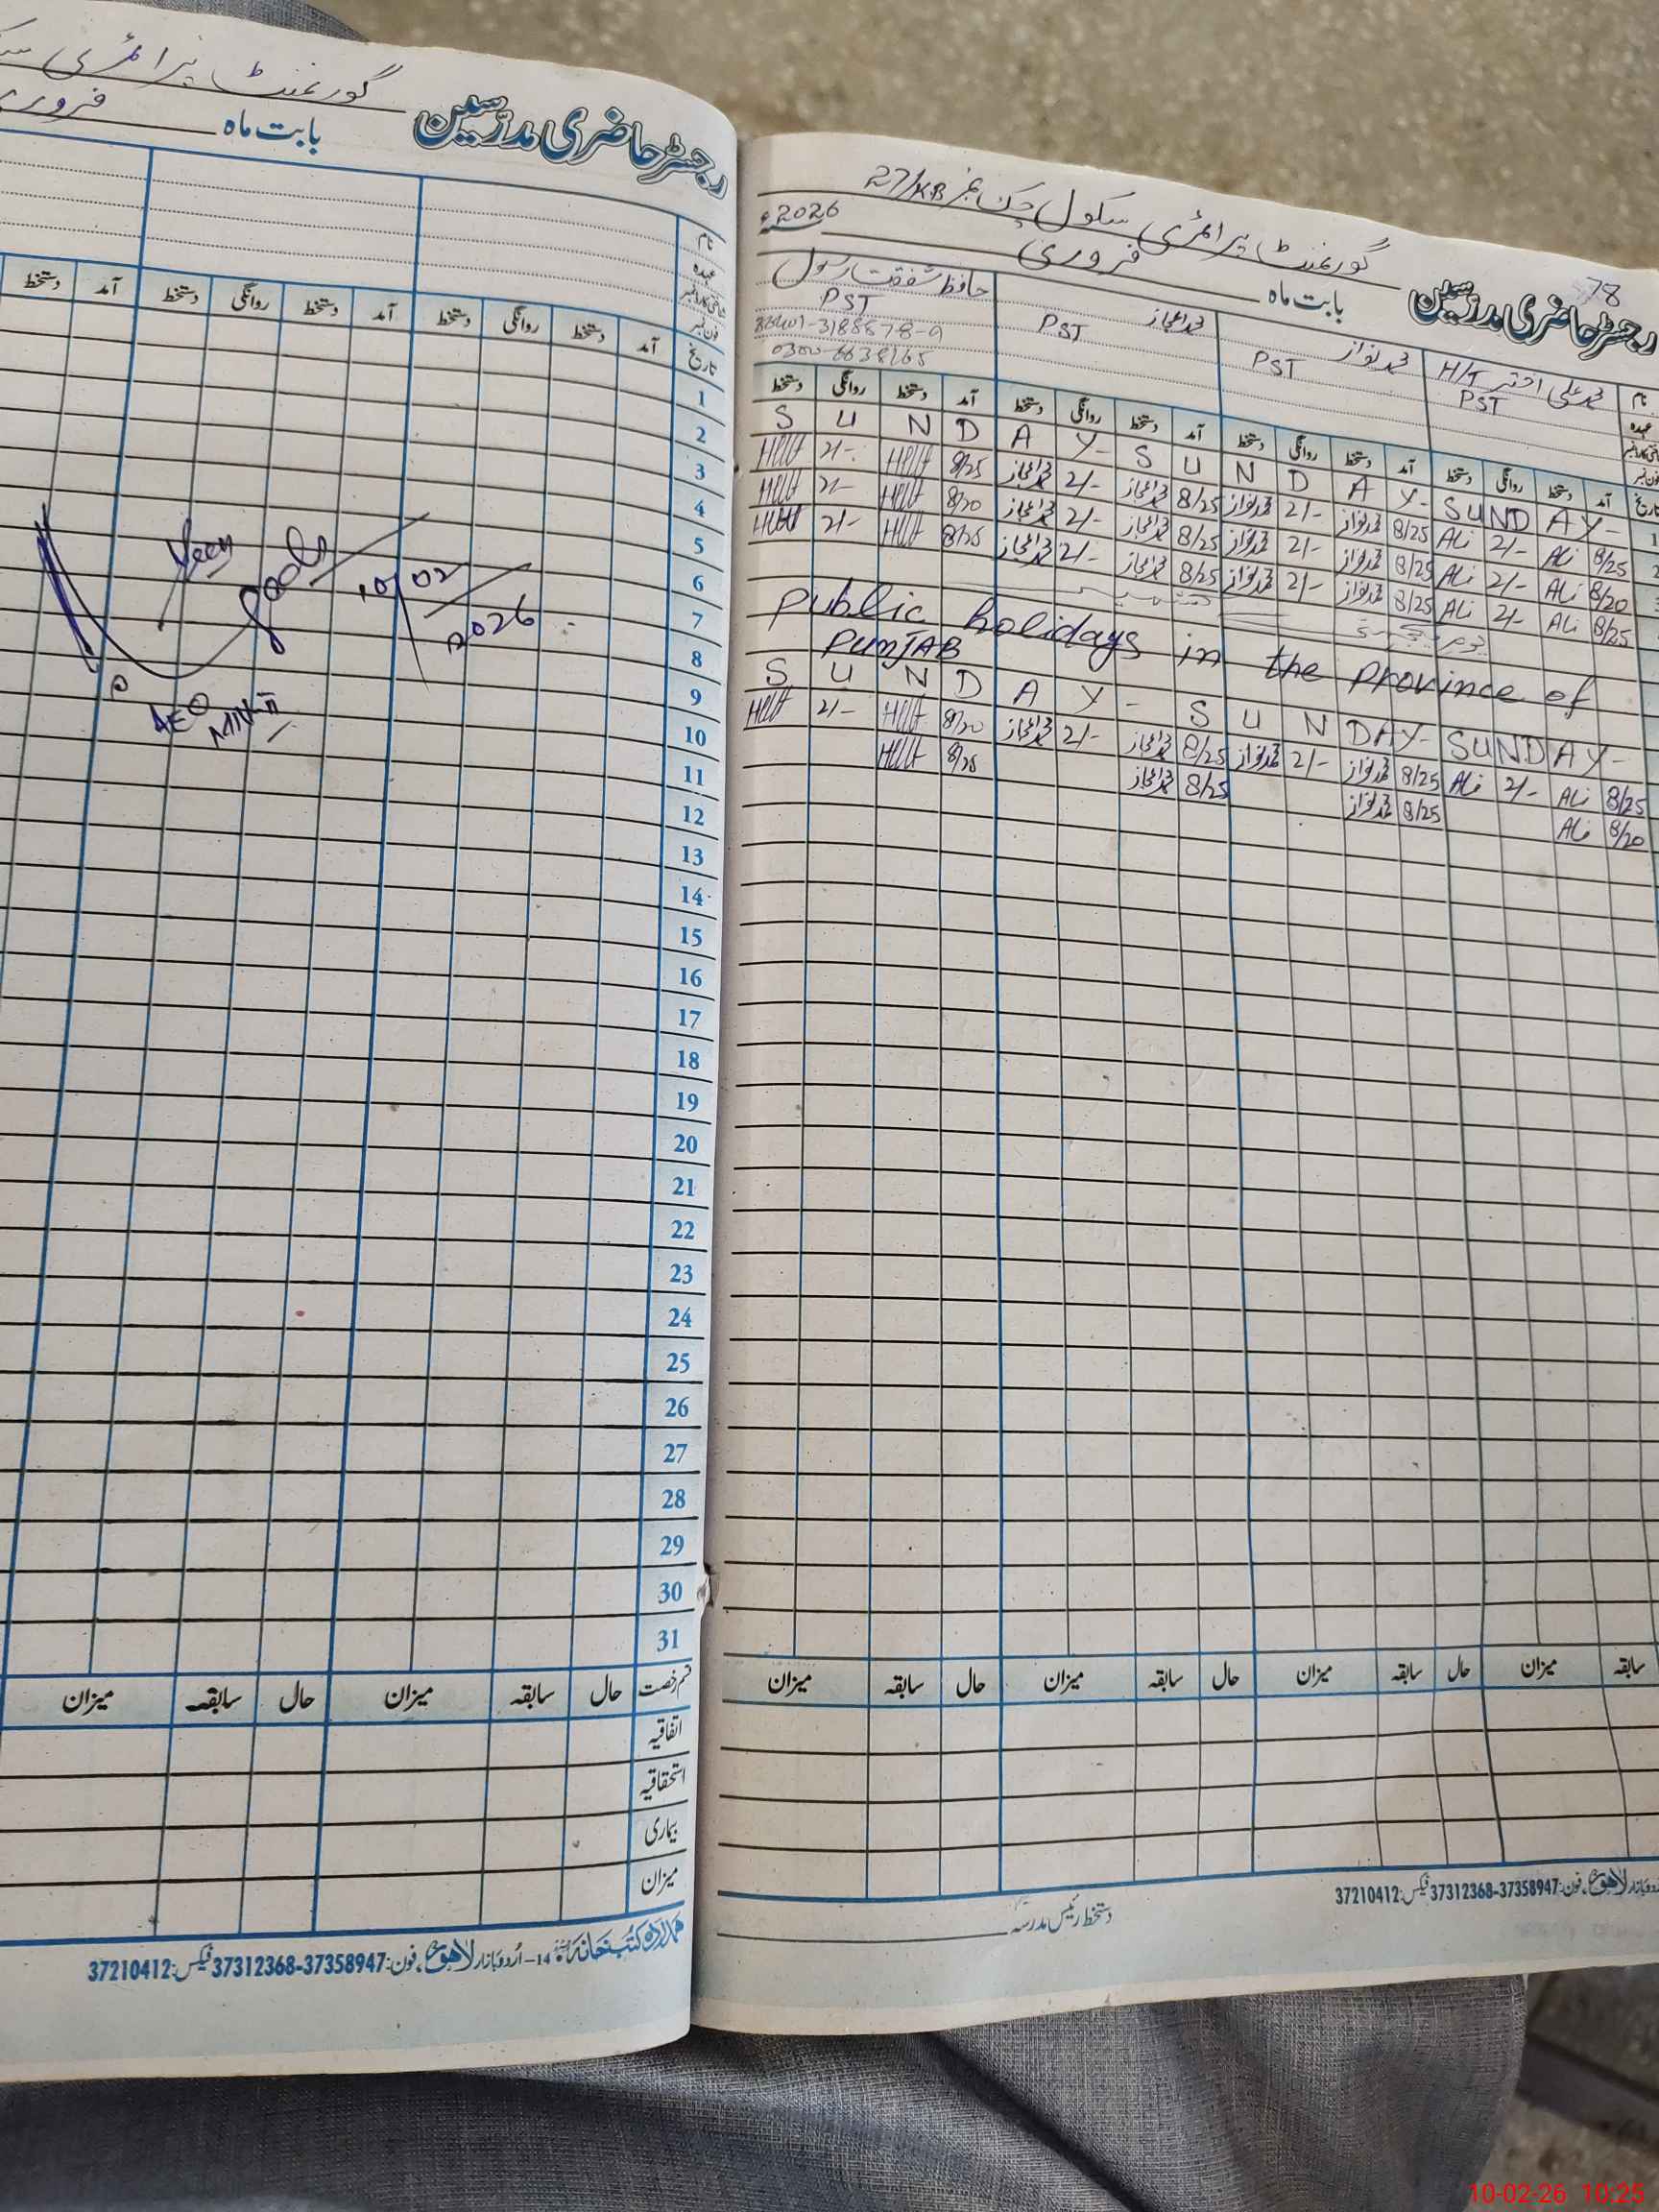 گورنمنٹ پرائمری
رجسٹر حاضری مدرسین
بابت ماہ
فروری
نام
عہدہ
شناختی کارڈ نمبر
فون نمبر
تاریخ آمد دستخط روانگی دستخط آمد دستخط روانگی دستخط آمد دستخط
1
2
3
4
5
6
7
8
9
10
11
12
13
14
15
16
17
18
19
20
21
22
23
24
25
26
27
28
29
30
31
Seen
10/02/2026
AEO
MNN-II
قسم رخصت حال سابقہ میزان حال سابقہ میزان
اتفاقیہ
استحقاقیہ
بیماری
میزان
ہمدرد کتب خانہ 14-اُردو بازار لاہور، فون: 37358947-37312368 فیکس: 37210412
78
گورنمنٹ پرائمری سکول چک نمبر 27/KB
رجسٹر حاضری مدرسین
بابت ماہ فروری 2026ء
نام محمد علی اختر H/T محمد نواز محمد اعجاز حافظ شفقت رسول
عہدہ PST PST PST PST
آمد دستخط روانگی دستخط آمد دستخط روانگی دستخط آمد دستخط روانگی دستخط آمد دستخط روانگی دستخط
S U N D A Y - S U N D A Y - SUND A Y -
8/25 Ali 2/- Ali 8/25 محمد نواز 2/- محمد نواز 8/25 محمد اعجاز 2/- محمد اعجاز 8/25 2/-
8/20 Ali 2/- Ali 8/25 محمد نواز 2/- محمد نواز 8/25 محمد اعجاز 2/- محمد اعجاز 8/20 2/-
8/25 Ali 2/- Ali 8/25 محمد نواز 2/- محمد نواز 8/25 محمد اعجاز 2/- محمد اعجاز 8/25 2/-
یوم یکجہتی کشمیر
public holidays in the province of
PUNJAB
S U N D A Y - S U N D A Y - SUND A Y -
8/25 Ali 2/- Ali 8/25 محمد نواز 2/- محمد نواز 8/25 محمد اعجاز 2/- محمد اعجاز 8/20 2/-
8/20 Ali 8/25 محمد نواز 8/25 محمد اعجاز 8/25
سابقہ میزان حال سابقہ میزان حال سابقہ میزان حال سابقہ میزان
اُردو بازار لاہور، فون: 37358947-37312368 فیکس: 37210412
دستخط رئیس مدرسہ
10-02-26 10:25